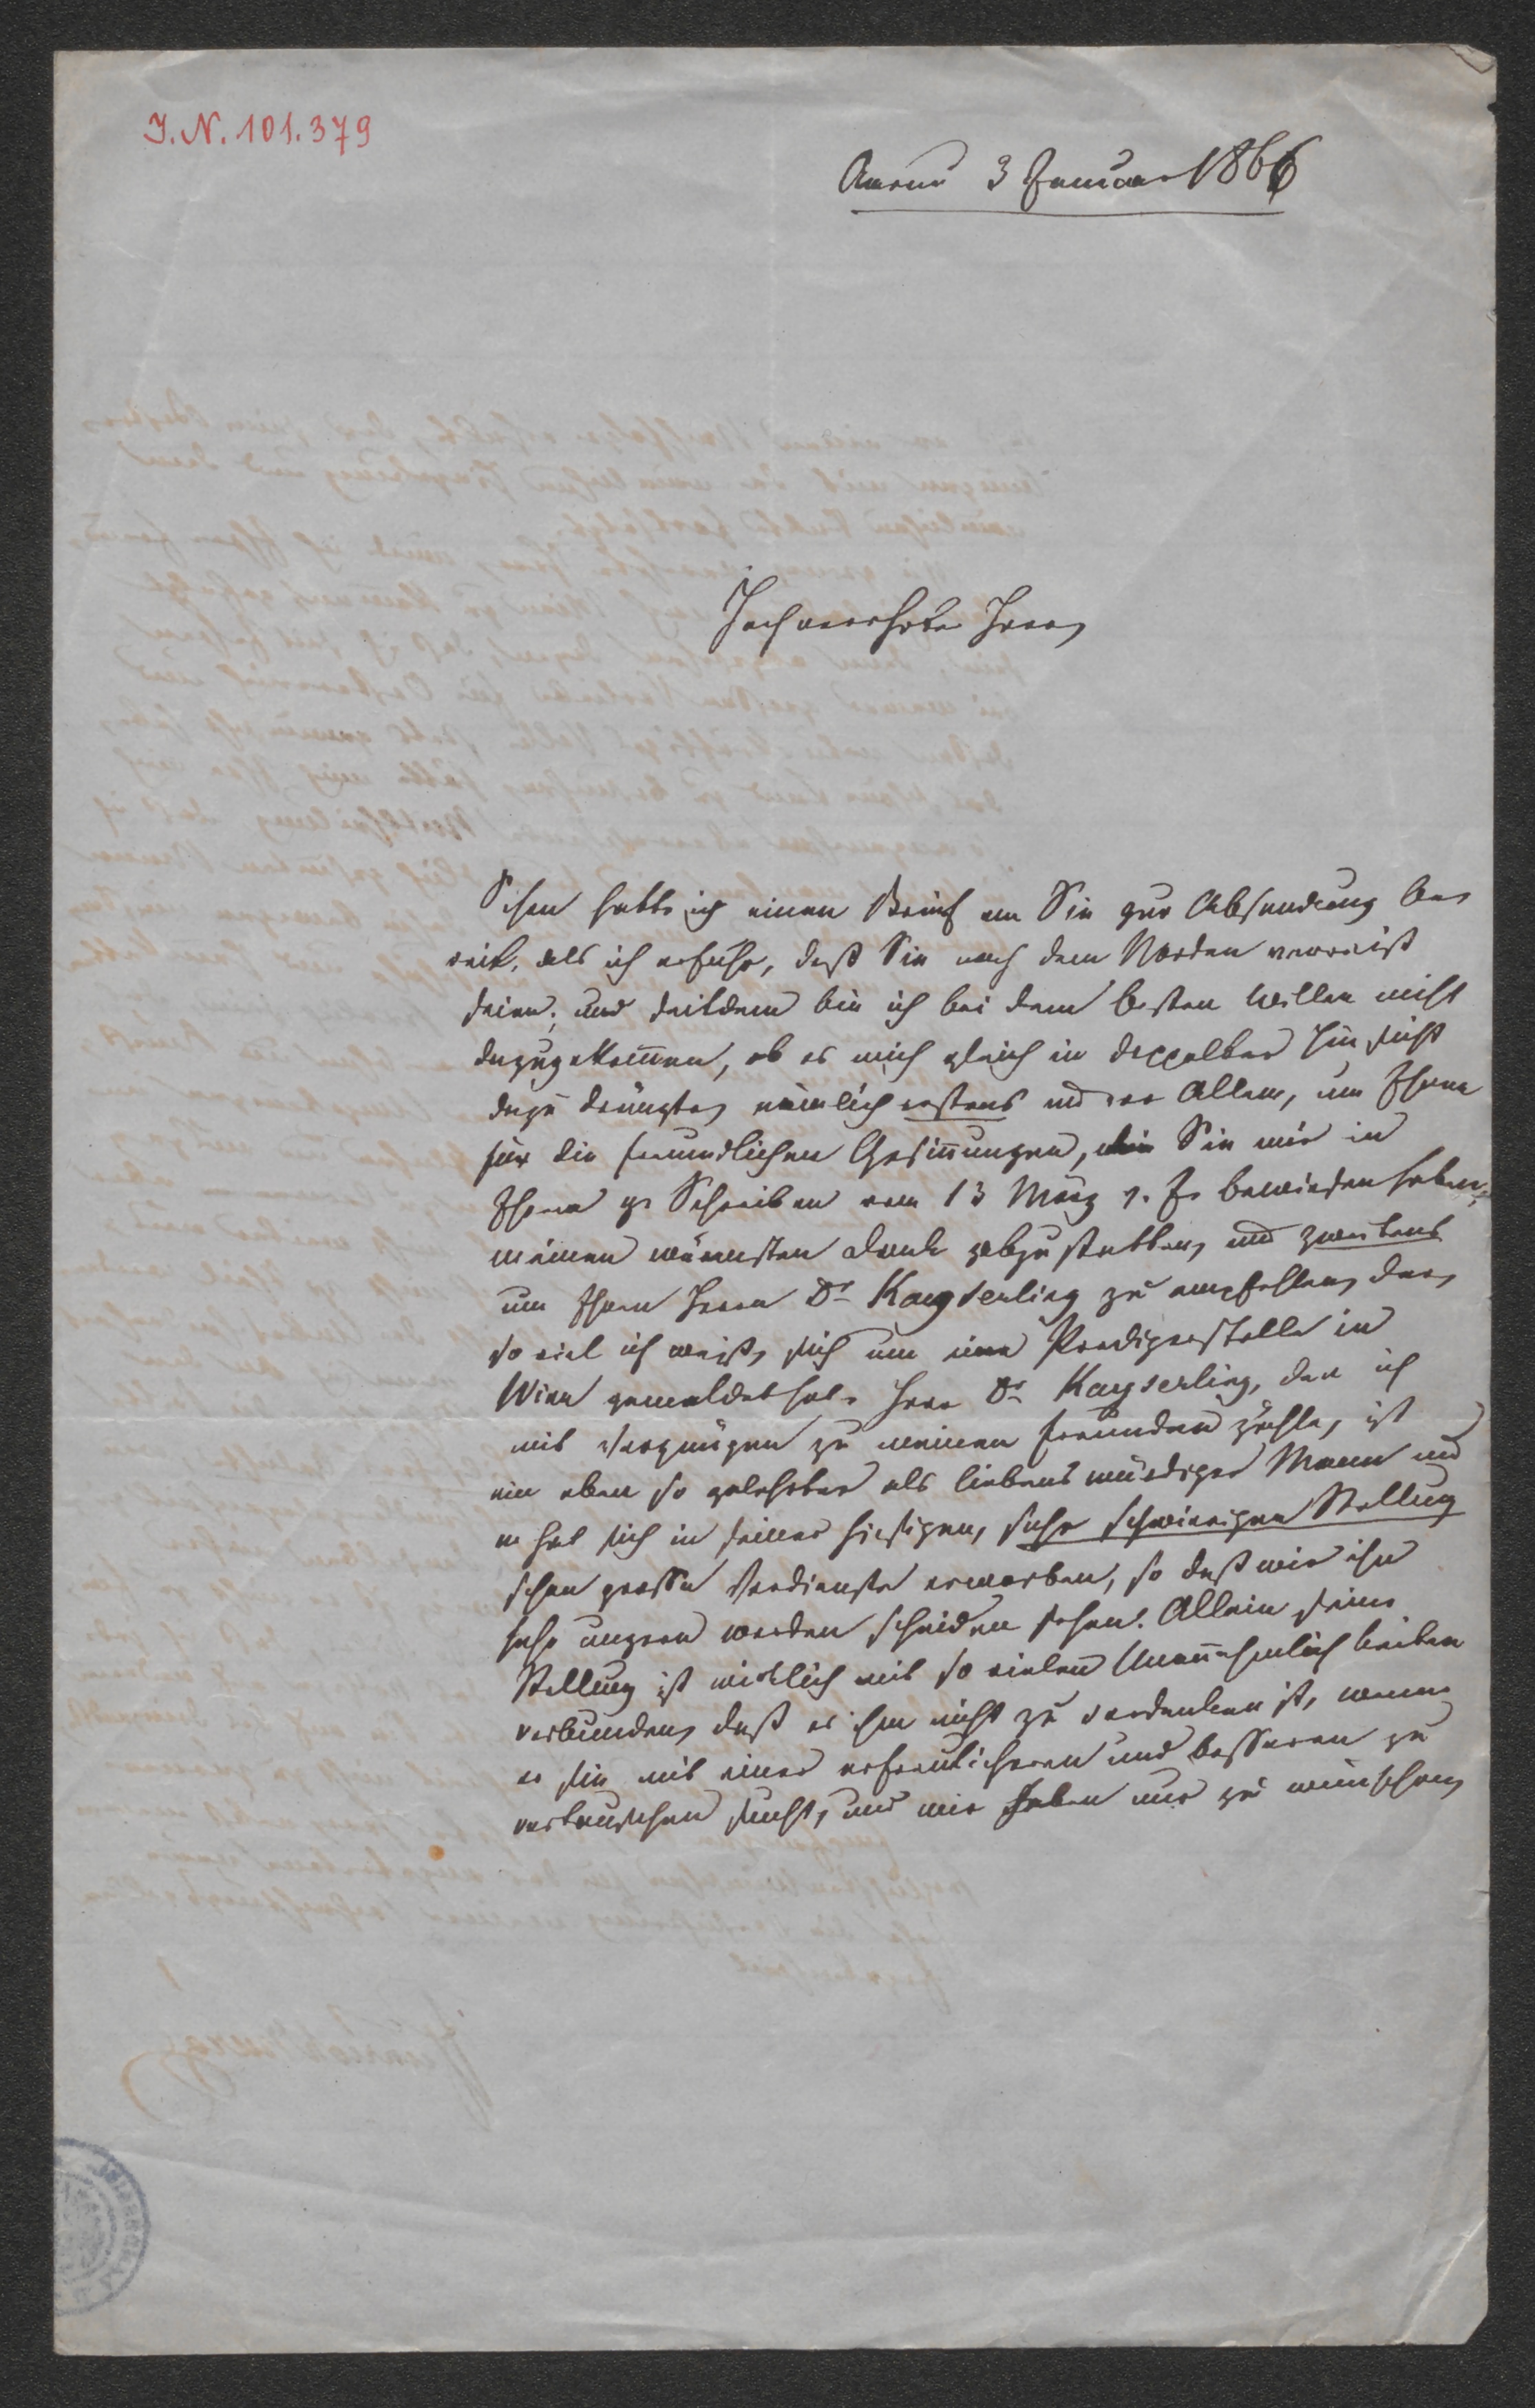 I.N. 101.379
Aarau 3 Januar 1866
Hochverehrter Herr,
Schon hatte ich einen Brief an Sie zur Absendung be
reit, als ich erfuhr, daß Sie nach dem Norden verreist
seien; und seitdem bin ich bei dem besten Willen nicht
dazugekom̄en, ob es mich gleich in doppelter Hinsicht
dazu drängte, nämlich erstens und vor Allem, um Ihnen
für die freundlichen Gesin̄ungen, die Sie mir in
Ihrem gr Schreiben vom 13 März v. J. bewiesen haben,
meinen wärmsten Dank abzustatten, und zweitens
um Ihnen Herrn Dr Kayserling zu empfehlen, der,
so viel ich weiß, sich um eine Predigerstelle in
Wien gemeldet hat. Herr Dr Kayserling, den ich
mit Vergnügen zu meinen Freunden zähle, ist
ein eben so gelehrter als liebenswürdiger Mann und
er hat sich in seiner hiesigen, sehr schwierigen Stellung
schon grosse Verdienste erworben, so daß wir ihn
sehr ungern werden scheiden sehen. Allein seine
Stellung ist wirklich mit so vielen Unan̄ehmlichkeiten
verbunden, daß es ihm nicht zu verdenken ist, wenn
er sie mit einer erfreulicheren und besseren zu
vertauschen sucht, und wir haben nur zu wünschen,